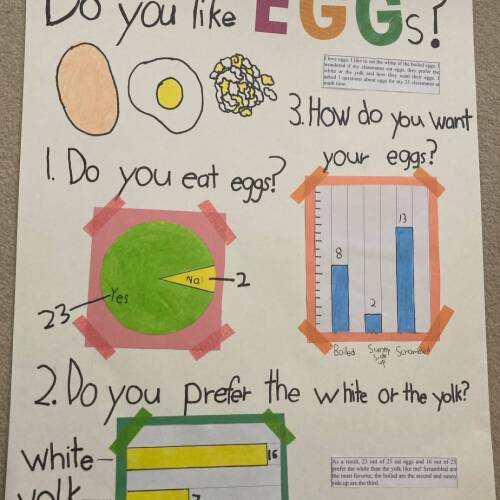 Do you like EGGs?
I love eggs. I like to eat the white of the boiled eggs. I
wondered if my classmates eat eggs, they prefer the
white or the yolk and how they want their eggs. I
asked 3 questions about eggs for my 25 classmates at
math time.
3. How do you want
your eggs?
1. Do you eat eggs?
Yes
23
No
2
8
2
13
Boiled
Sunny
side
up
Scrambled
2. Do you prefer the white or the yolk?
white
16
yolk
7
As a result, 23 out of 25 eat eggs and 16 out of 23
prefer the white than the yolk like me! Scrambled are
the most favorite, the boiled are the second and sunny
side up are the third.